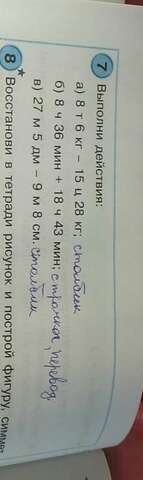 7 Выполни действия:
а) 8 т 6 кг – 15 ц 28 кг; столбик
б) 8 ч 36 мин + 18 ч 43 мин; строчка, перевод
в) 27 м 5 дм – 9 м 8 см. столбик
8* Восстанови в тетради рисунок и построй фигуру, симме